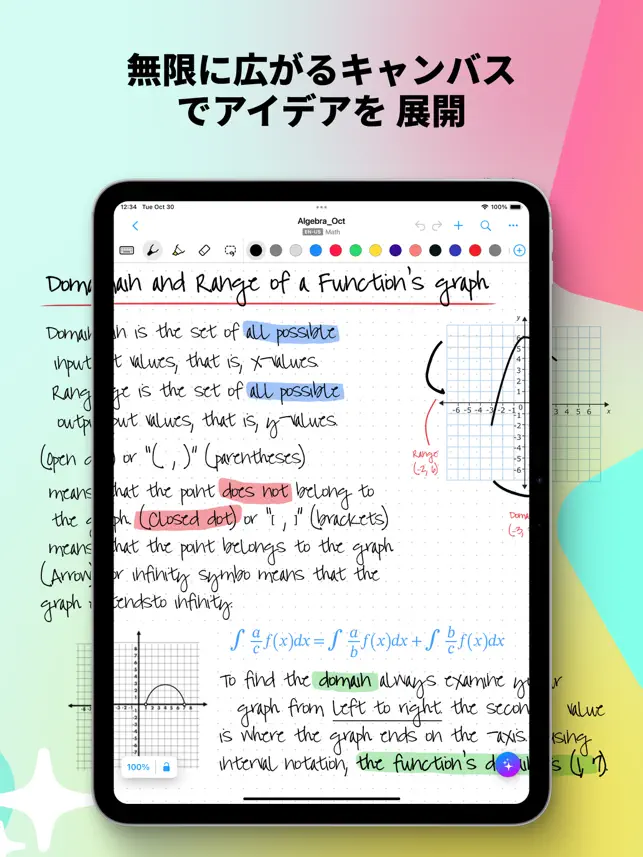 無限に広がるキャンバス
でアイデアを 展開
12:34 Tue Oct 30
100%
Algebra_Oct
EN-US Math
Domain and Range of a Function's graph
is the set of all possible
values, that is, x-values.
is the set of all possible
values, that is, y-values.
(Open or "( , )" (parentheses)
means that the point does not belong to
the (closed dot) or "[ , ]" (brackets)
means that the point belongs to the graph
(Arrow) or infinity symbo means that the
graph to infinity.
y
6 5 4 3 2 1
-6 -5 -4 -3 -2 -1 0
3 4 5 6 x
-1 -2 -3 -4 -5 -6
Range
(-2, 6)
(-3,
∫ a/c f(x)dx = ∫ a/b f(x)dx + ∫ b/c f(x)dx
To find the domain always examine your
graph from left to right the second value
is where the graph ends on the -axis. using
interval notation, the function's (1, 7).
100%